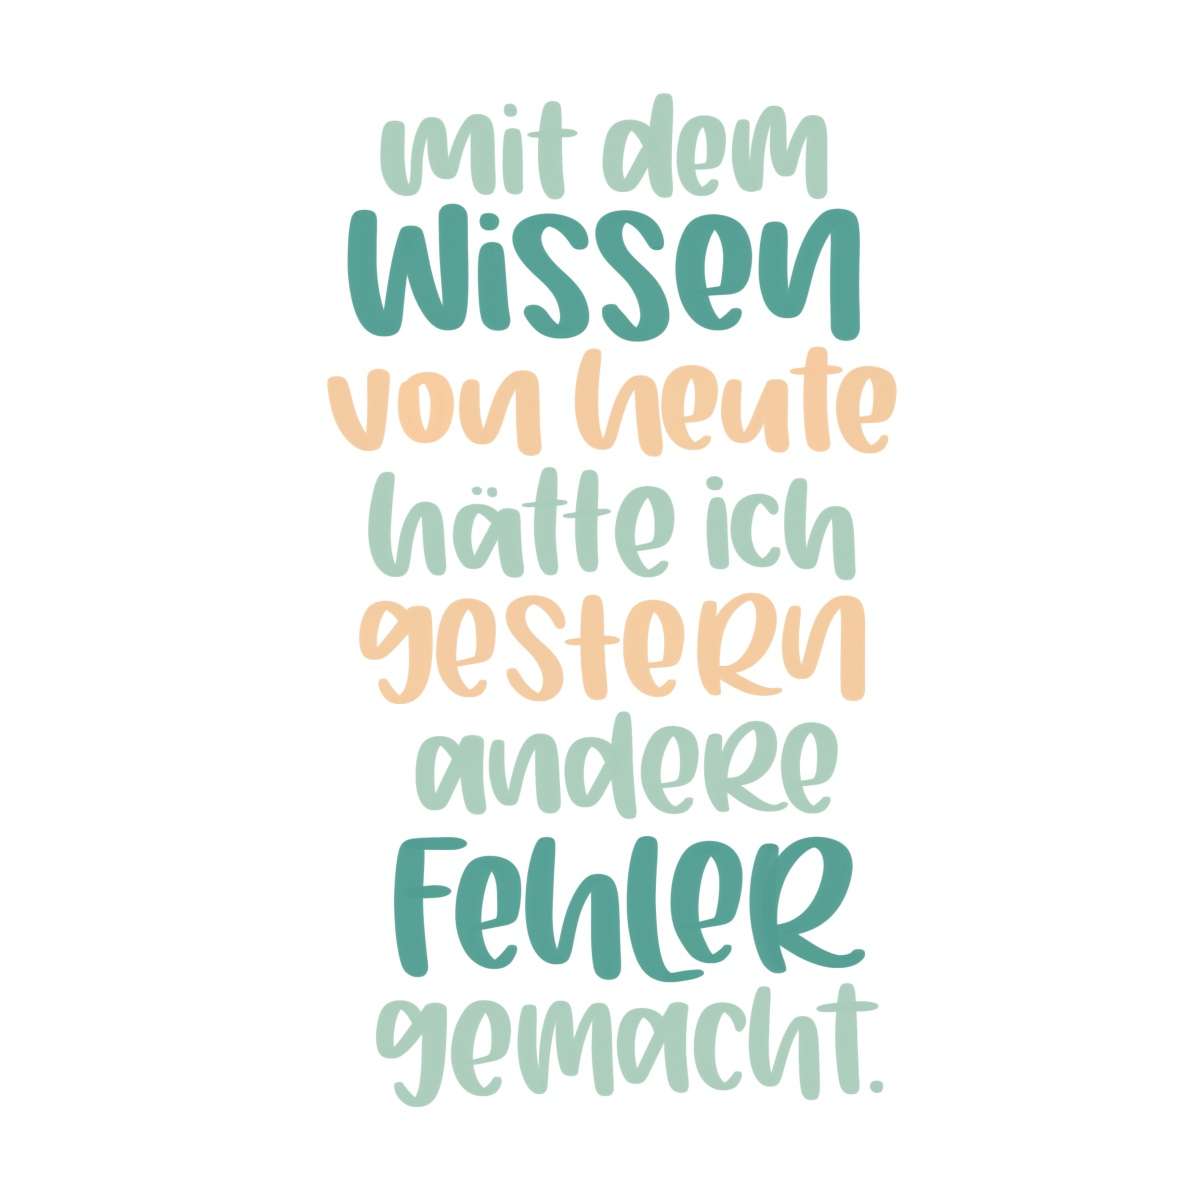 mit dem
Wissen
von heute
hätte ich
gestern
andere
Fehler
gemacht.